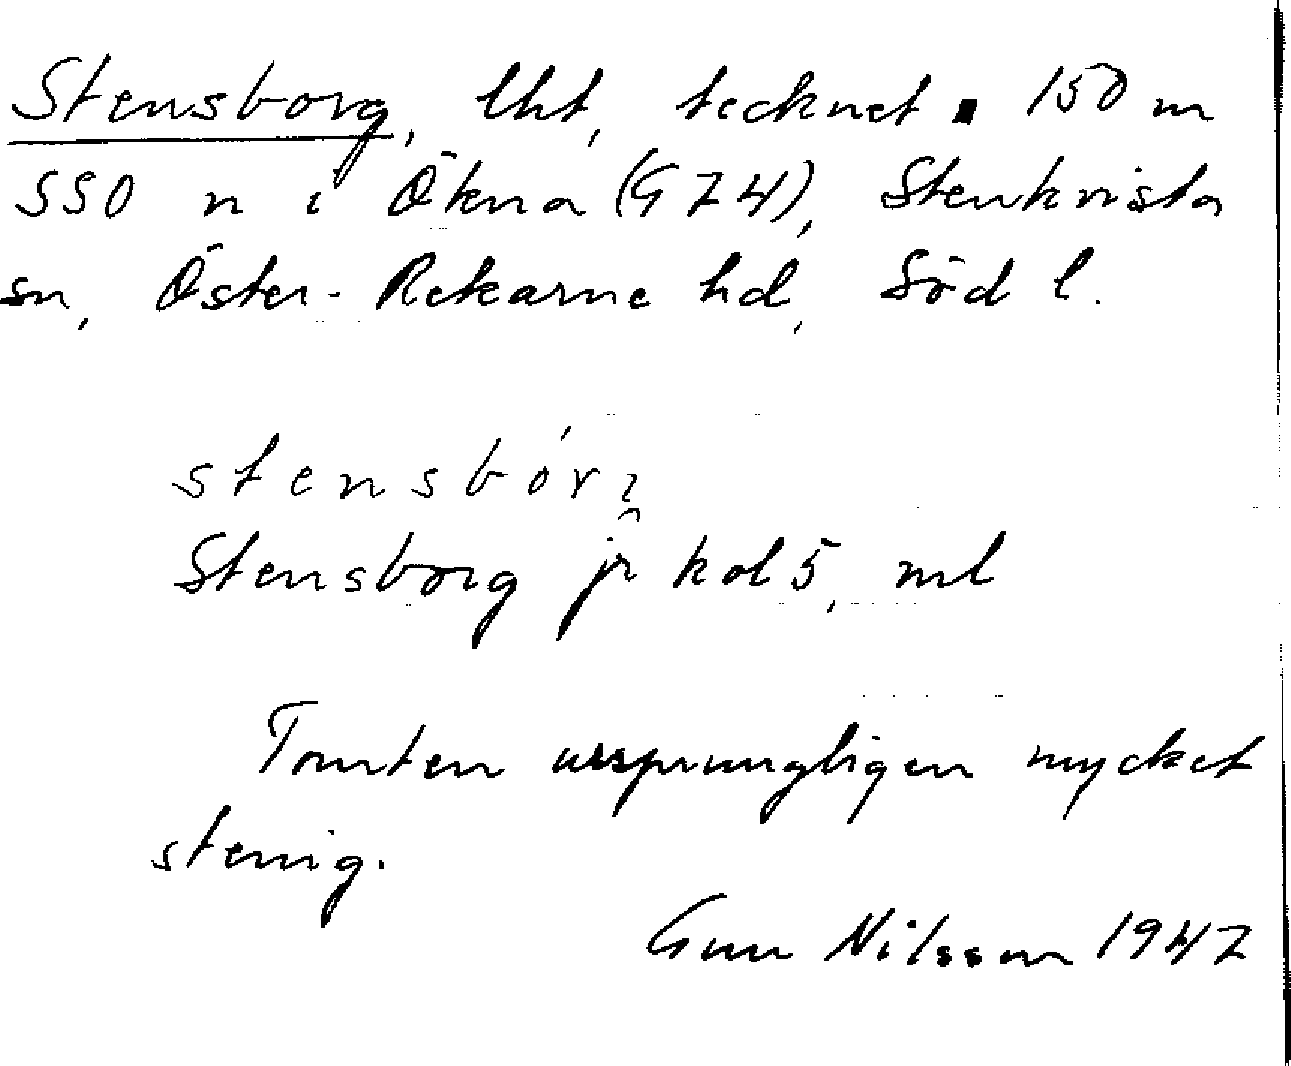 Stensborg, lht, tecknet ▪ 150 m
SSO n i Ökna (G 74), Stenkvista
sn, Öster-Rekarne hd, Söd l.
stensbór
Stensborg jr kol 5, ml
Tomten ursprungligen mycket
stenig.
Gun Nilsson 1947